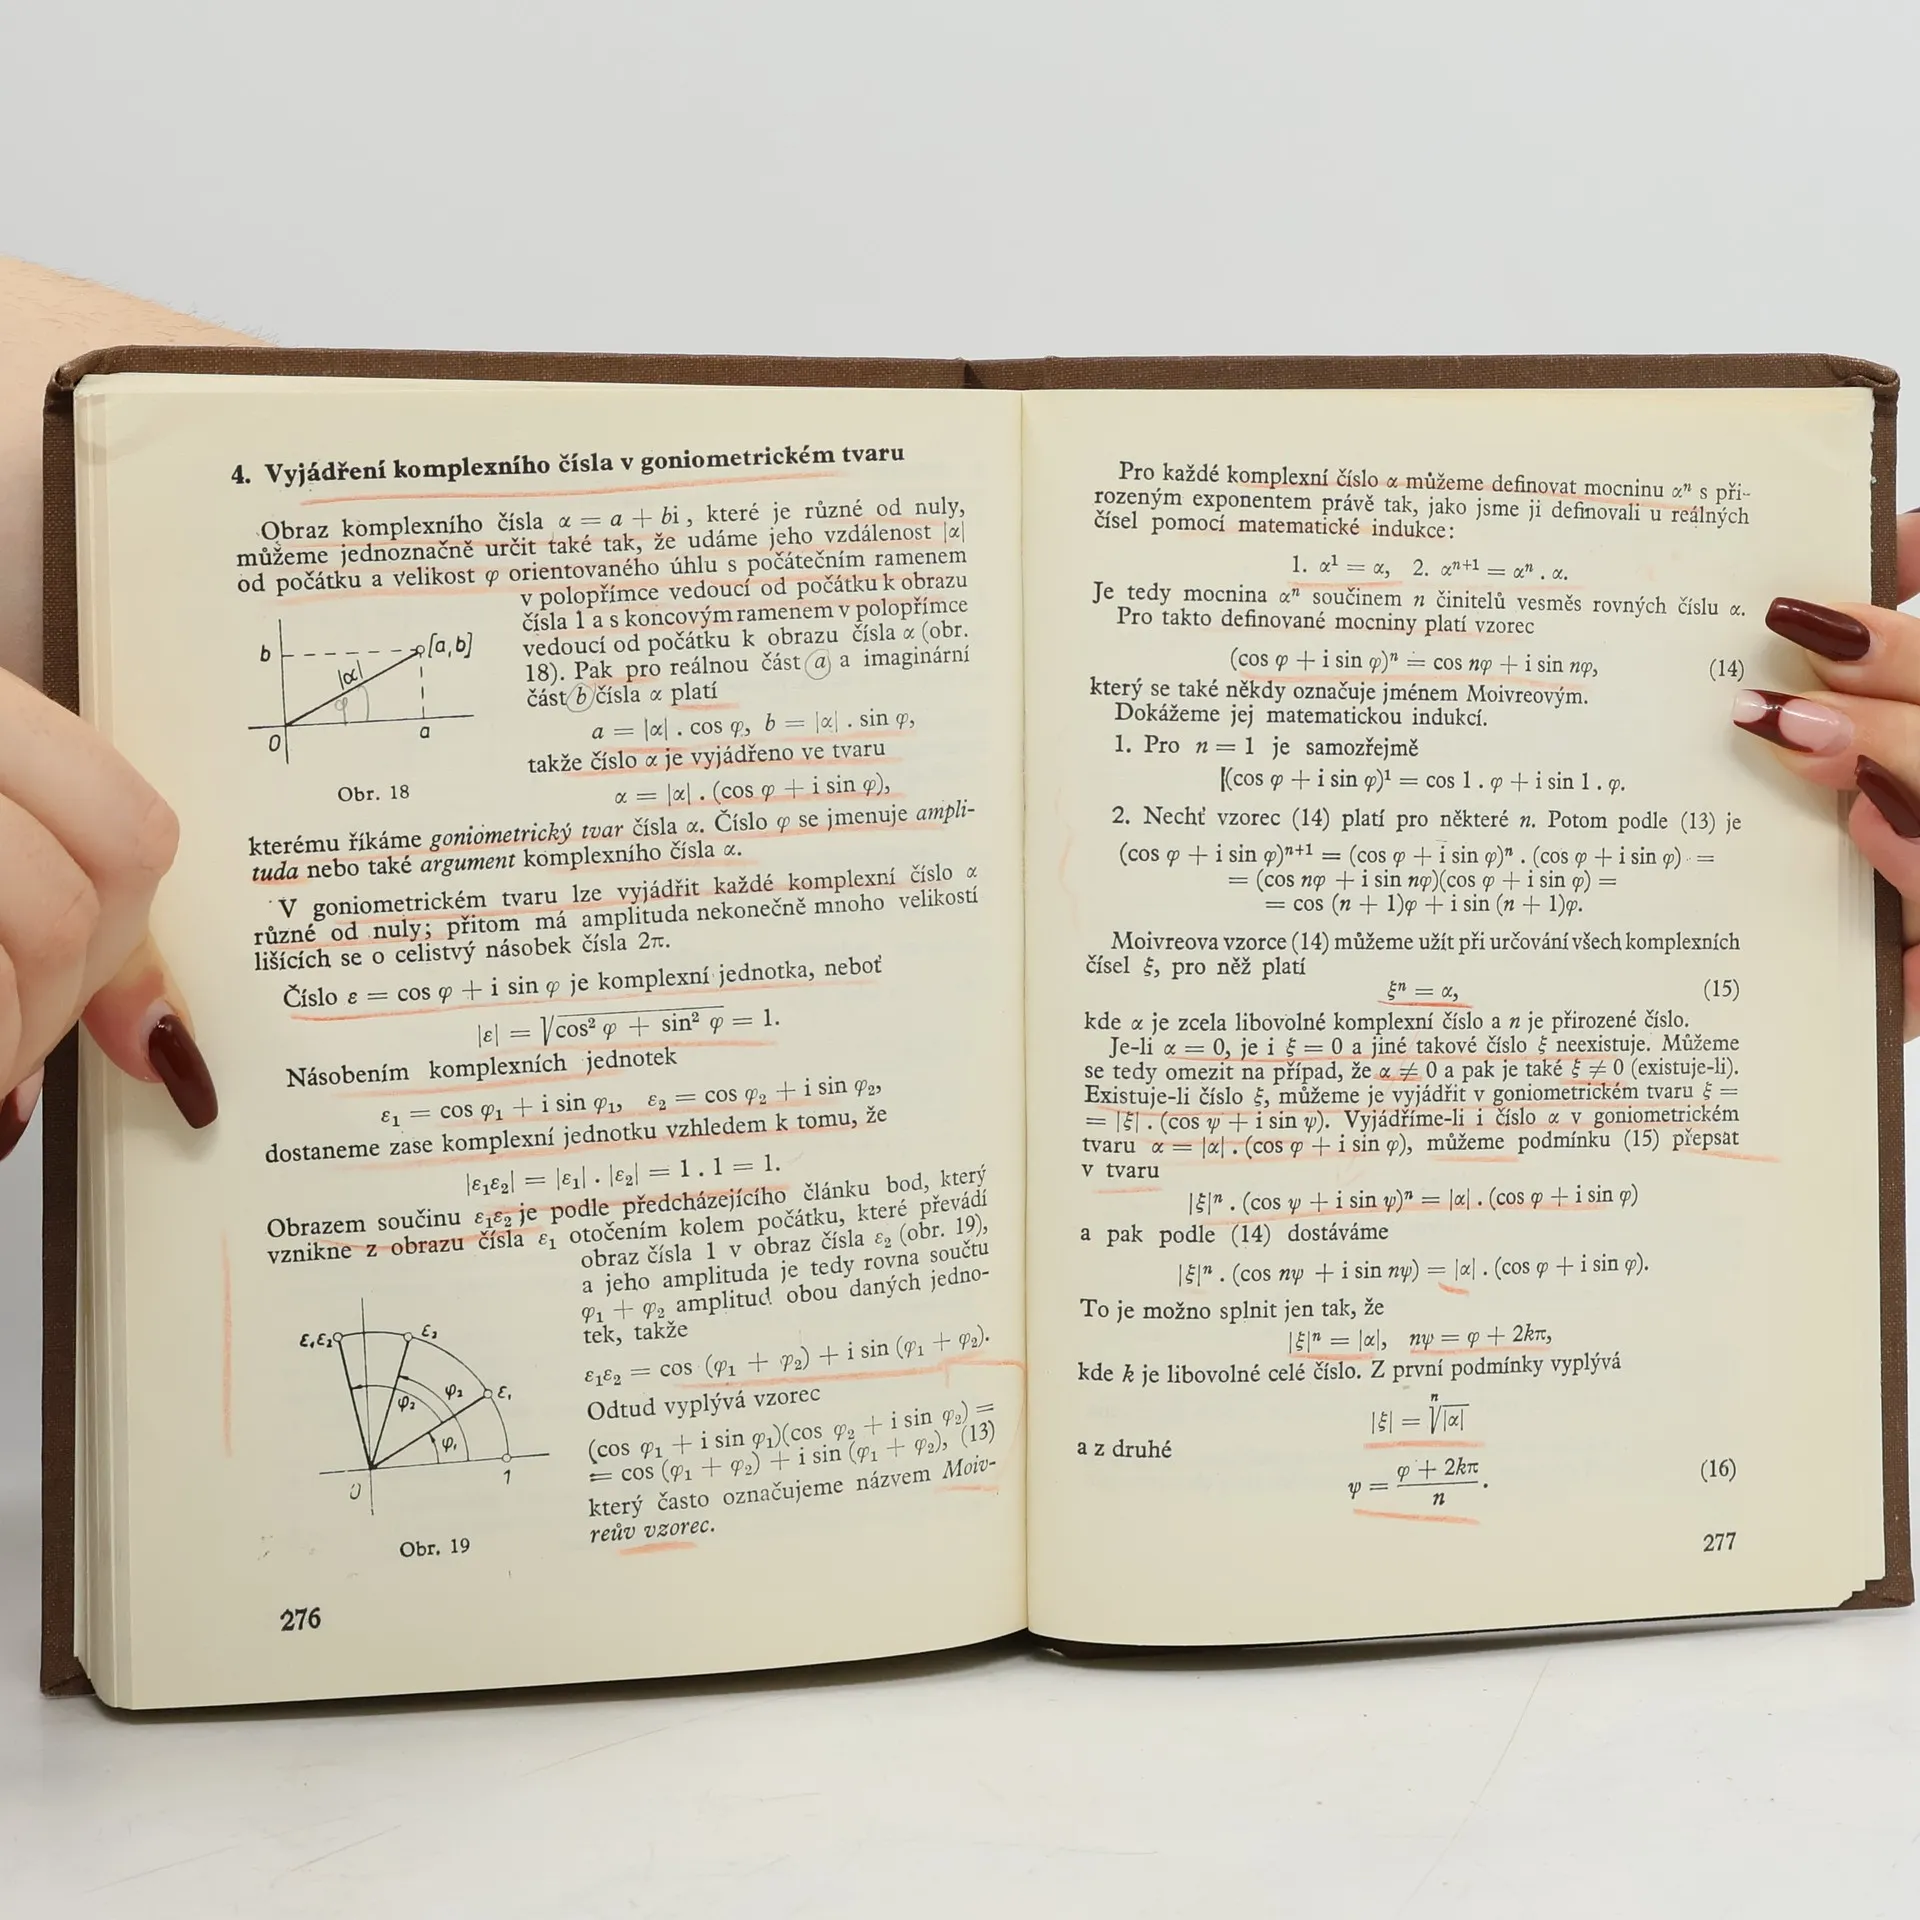 4. Vyjádření komplexního čísla v goniometrickém tvaru
Obraz komplexního čísla α = a + bi, které je různé od nuly,
můžeme jednoznačně určit také tak, že udáme jeho vzdálenost |α|
od počátku a velikost φ orientovaného úhlu s počátečním ramenem
v polopřímce vedoucí od počátku k obrazu
čísla 1 a s koncovým ramenem v polopřímce
vedoucí od počátku k obrazu čísla α (obr.
18). Pak pro reálnou část a a imaginární
část b čísla α platí
a = |α| . cos φ, b = |α| . sin φ,
takže číslo α je vyjádřeno ve tvaru
α = |α| . (cos φ + i sin φ),
b
[a,b]
|α|
φ
O
a
Obr. 18
kterému říkáme goniometrický tvar čísla α. Číslo φ se jmenuje ampli-
tuda nebo také argument komplexního čísla α.
V goniometrickém tvaru lze vyjádřit každé komplexní číslo α
různé od nuly; přitom má amplituda nekonečně mnoho velikostí
lišících se o celistvý násobek čísla 2π.
Číslo ε = cos φ + i sin φ je komplexní jednotka, neboť
|ε| = √cos² φ + sin² φ = 1.
Násobením komplexních jednotek
ε₁ = cos φ₁ + i sin φ₁, ε₂ = cos φ₂ + i sin φ₂,
dostaneme zase komplexní jednotku vzhledem k tomu, že
|ε₁ε₂| = |ε₁| . |ε₂| = 1 . 1 = 1.
Obrazem součinu ε₁ε₂ je podle předcházejícího článku bod, který
vznikne z obrazu čísla ε₁ otočením kolem počátku, které převádí
obraz čísla 1 v obraz čísla ε₂ (obr. 19),
a jeho amplituda je tedy rovna součtu
φ₁ + φ₂ amplitud obou daných jedno-
tek, takže
ε₁ε₂ = cos (φ₁ + φ₂) + i sin (φ₁ + φ₂).
Odtud vyplývá vzorec
(cos φ₁ + i sin φ₁)(cos φ₂ + i sin φ₂) =
= cos (φ₁ + φ₂) + i sin (φ₁ + φ₂), (13)
který často označujeme názvem Moiv-
reův vzorec.
ε₁ε₂
ε₂
ε₁
φ₂
φ₂
φ₁
O
1
Obr. 19
276
Pro každé komplexní číslo α můžeme definovat mocninu αⁿ s při-
rozeným exponentem právě tak, jako jsme ji definovali u reálných
čísel pomocí matematické indukce:
1. α¹ = α, 2. αⁿ⁺¹ = αⁿ . α.
Je tedy mocnina αⁿ součinem n činitelů vesměs rovných číslu α.
Pro takto definované mocniny platí vzorec
(cos φ + i sin φ)ⁿ = cos nφ + i sin nφ, (14)
který se také někdy označuje jménem Moivreovým.
Dokážeme jej matematickou indukcí.
1. Pro n = 1 je samozřejmě
(cos φ + i sin φ)¹ = cos 1 . φ + i sin 1 . φ.
2. Nechť vzorec (14) platí pro některé n. Potom podle (13) je
(cos φ + i sin φ)ⁿ⁺¹ = (cos φ + i sin φ)ⁿ . (cos φ + i sin φ) =
= (cos nφ + i sin nφ)(cos φ + i sin φ) =
= cos (n + 1)φ + i sin (n + 1)φ.
Moivreova vzorce (14) můžeme užít při určování všech komplexních
čísel ξ, pro něž platí
ξⁿ = α, (15)
kde α je zcela libovolné komplexní číslo a n je přirozené číslo.
Je-li α = 0, je i ξ = 0 a jiné takové číslo ξ neexistuje. Můžeme
se tedy omezit na případ, že α ≠ 0 a pak je také ξ ≠ 0 (existuje-li).
Existuje-li číslo ξ, můžeme je vyjádřit v goniometrickém tvaru ξ =
= |ξ| . (cos ψ + i sin ψ). Vyjádříme-li i číslo α v goniometrickém
tvaru α = |α| . (cos φ + i sin φ), můžeme podmínku (15) přepsat
v tvaru
|ξ|ⁿ . (cos ψ + i sin ψ)ⁿ = |α| . (cos φ + i sin φ)
a pak podle (14) dostáváme
|ξ|ⁿ . (cos nψ + i sin nψ) = |α| . (cos φ + i sin φ).
To je možno splnit jen tak, že
|ξ|ⁿ = |α|, nψ = φ + 2kπ,
kde k je libovolné celé číslo. Z první podmínky vyplývá
|ξ| = ⁿ√|α|
a z druhé
ψ = (φ + 2kπ)/n. (16)
277